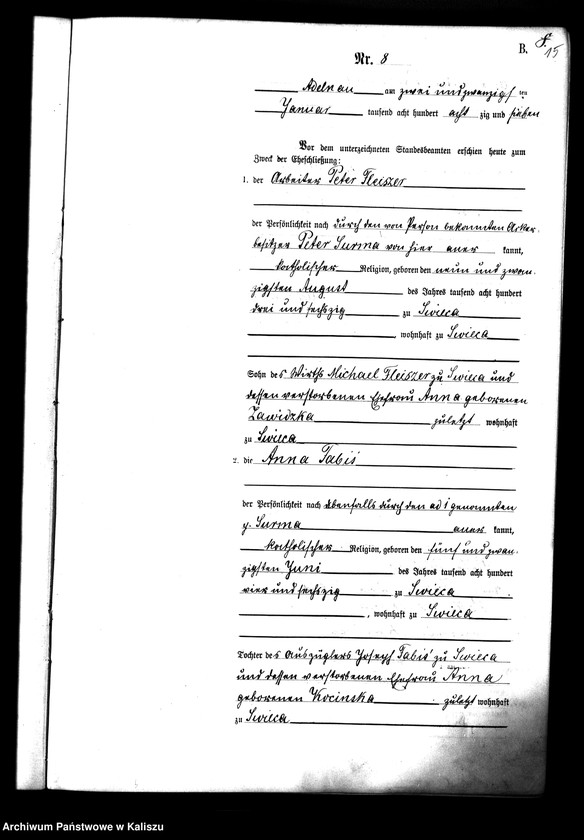 B.
15
Nr. 8
Adelnau am zwei und zwanzigsten
Januar tausend acht hundert acht zig und sieben
Vor dem unterzeichneten Standesbeamten erschien heute zum
Zweck der Eheschließung:
1. der Arbeiter Peter Fleiszer
der Persönlichkeit nach durch den von Person bekannten Acker-
besitzer Peter Surma von hier aner kannt,
katholischer Religion, geboren den neun und zwan-
zigsten August des Jahres tausend acht hundert
drei und sechszig zu Swieca
, wohnhaft zu Swieca
Sohn des Wirths Michael Fleiszer zu Swieca und
dessen verstorbenen Ehefrau Anna geborenen
Zawidzka zuletzt wohnhaft
zu Swieca
2. die Anna Tabiś
der Persönlichkeit nach ebenfalls durch den ad 1 genannten
p. Surma aner kannt,
katholischer Religion, geboren den fünf und zwan-
zigsten Juni des Jahres tausend acht hundert
vier und sechszig zu Swieca
, wohnhaft zu Swieca
Tochter des Auszüglers Joseph Tabiś zu Swieca
und dessen verstorbenen Ehefrau Anna
geborenen Kocinska zuletzt wohnhaft
zu Swieca
Archiwum Państwowe w Kaliszu